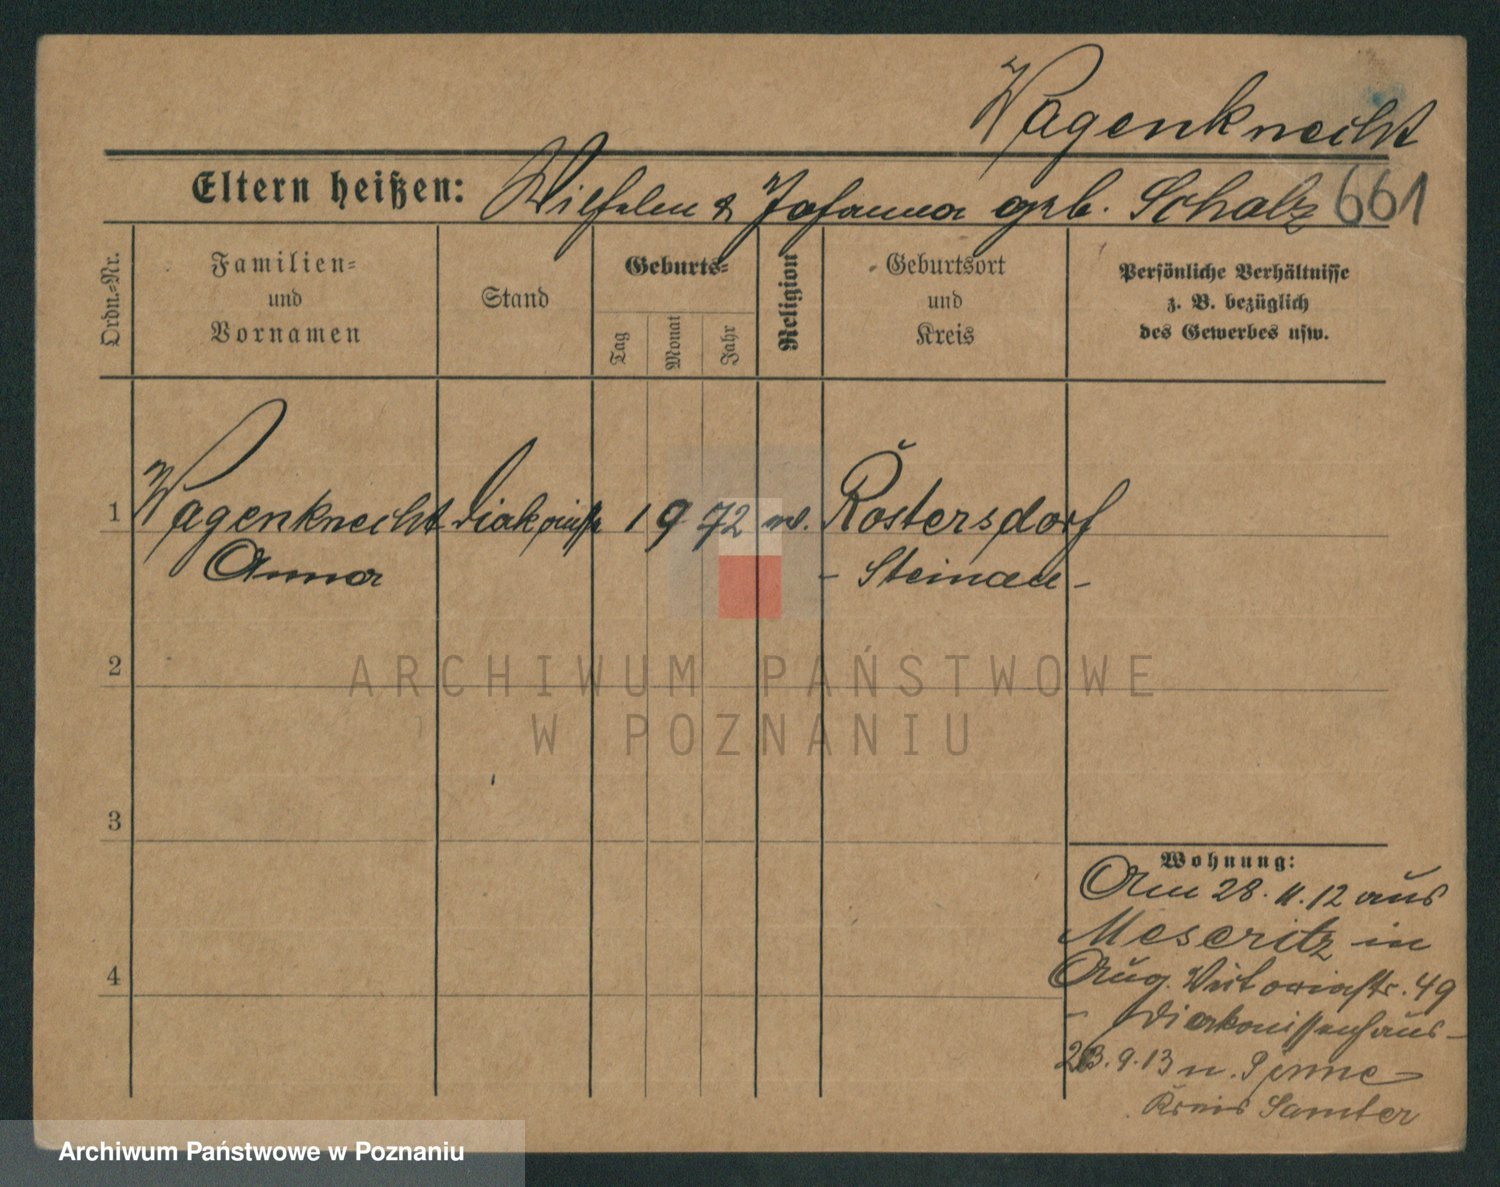 Wagenknecht
Eltern heißen: Wilhelm & Johanna geb. Scholz 661
Ordn.-Nr.
Familien-
und
Vornamen
Stand
Geburts-
Tag
Monat
Jahr
Religion
Geburtsort
und
Kreis
Persönliche Verhältnisse
z. B. bezüglich
des Gewerbes usw.
1 Wagenknecht Diakonisse 1 9 72 ev. Röstersdorf
Anna - Steinau -
2
ARCHIWUM PAŃSTWOWE
W POZNANIU
3
4
Wohnung:
Am 28.11.12 aus
Meseritz in
Aug. Victoriastr. 49
- Diakonissenhaus -
23.9.13 n. Pinne
Kreis Samter
Archiwum Państwowe w Poznaniu